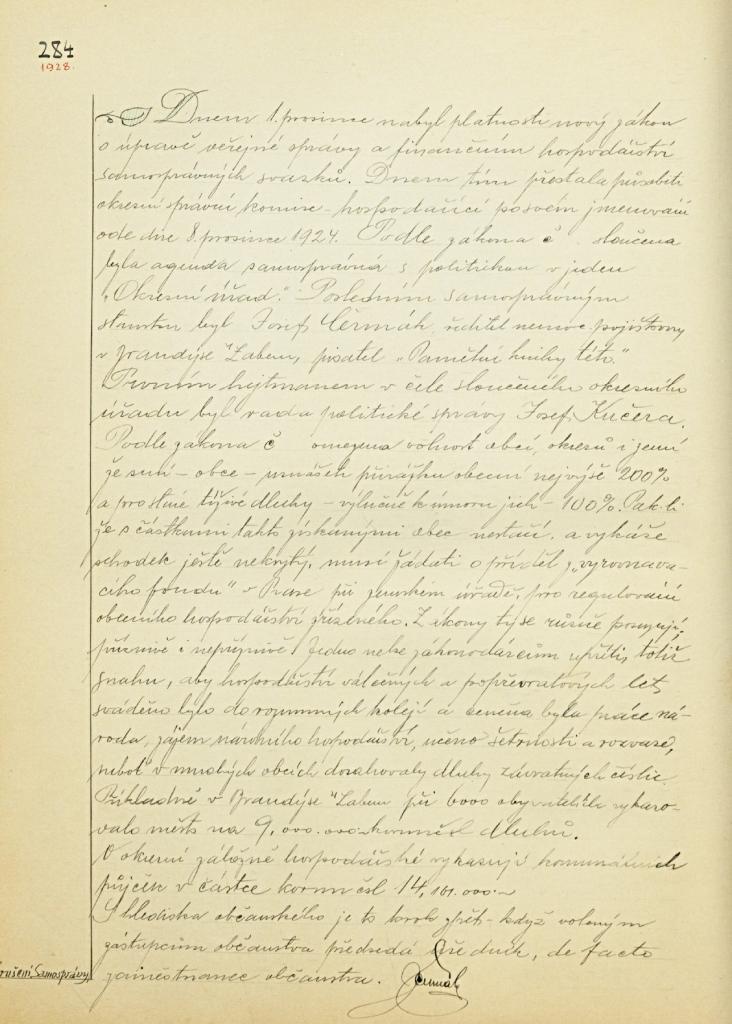 284
1928.
Dnem 1. prosince nabyl platnosti nový zákon
o úpravě veřejné správy a finančním hospodářství
samosprávných svazků. Dnem tím přestala působiti
okresní správní komise – hospodařící po svém jmenování
ode dne 8. prosince 1924. Podle zákona č . sloučena
byla agenda samosprávná s politickou v jeden
„Okresní úřad.“ Posledním samosprávným
byl Josef Čermák, ředitel nemoc. pojišťovny
v Brandýse "Labem, pisatel „Pamětní knihy této.“
Prvním hejtmanem v čele sloučeného okresního
úřadu byl rada politické správy Josef Kučera.
Podle zákona č omezena volnost obcí, okresů i zemí
že smí – obce – usnášeti přirážku obecní nejvýše 200%
a pro staré tíživé dluhy – výlučně k úmoru jich – 100%. Pak-li
že s částkami takto získanými obec nestačí, a vykáže
schodek ještě nekrytý, musí žádati o příděl z „vyrovnava-
cího fondu“ v Praze při zemském úřadě, pro regulování
obecního hospodářství zřízeného. Zákony ty se různě posuzují,
příznivě i nepříznivě. Jedno nelze zákonodárcům upříti, totiž
snahu, aby hospodářství válečných a popřevratových let
svedeno bylo do rozumných kolejí a ceněna byla práce ná-
roda, zájem národního hospodářství, učeno šetrnosti a rozvaze,
neboť v mnohých obcích dosahovaly dluhy závratných číslic.
Příkladně v Brandýse "Labem při 6000 obyvatelích vykazo-
valo město na 9,000.000 korun čsl dluhů.
V okresní záložně hospodářské vykazují komunálních
půjček v částce korun čsl 14, 101.000.–
S hlediska občanského je to krok zpět – když voleným
zástupcům občanstva předsedá úředník, de facto
zaměstnanec občanstva. Čermák
zrušení Samosprávy